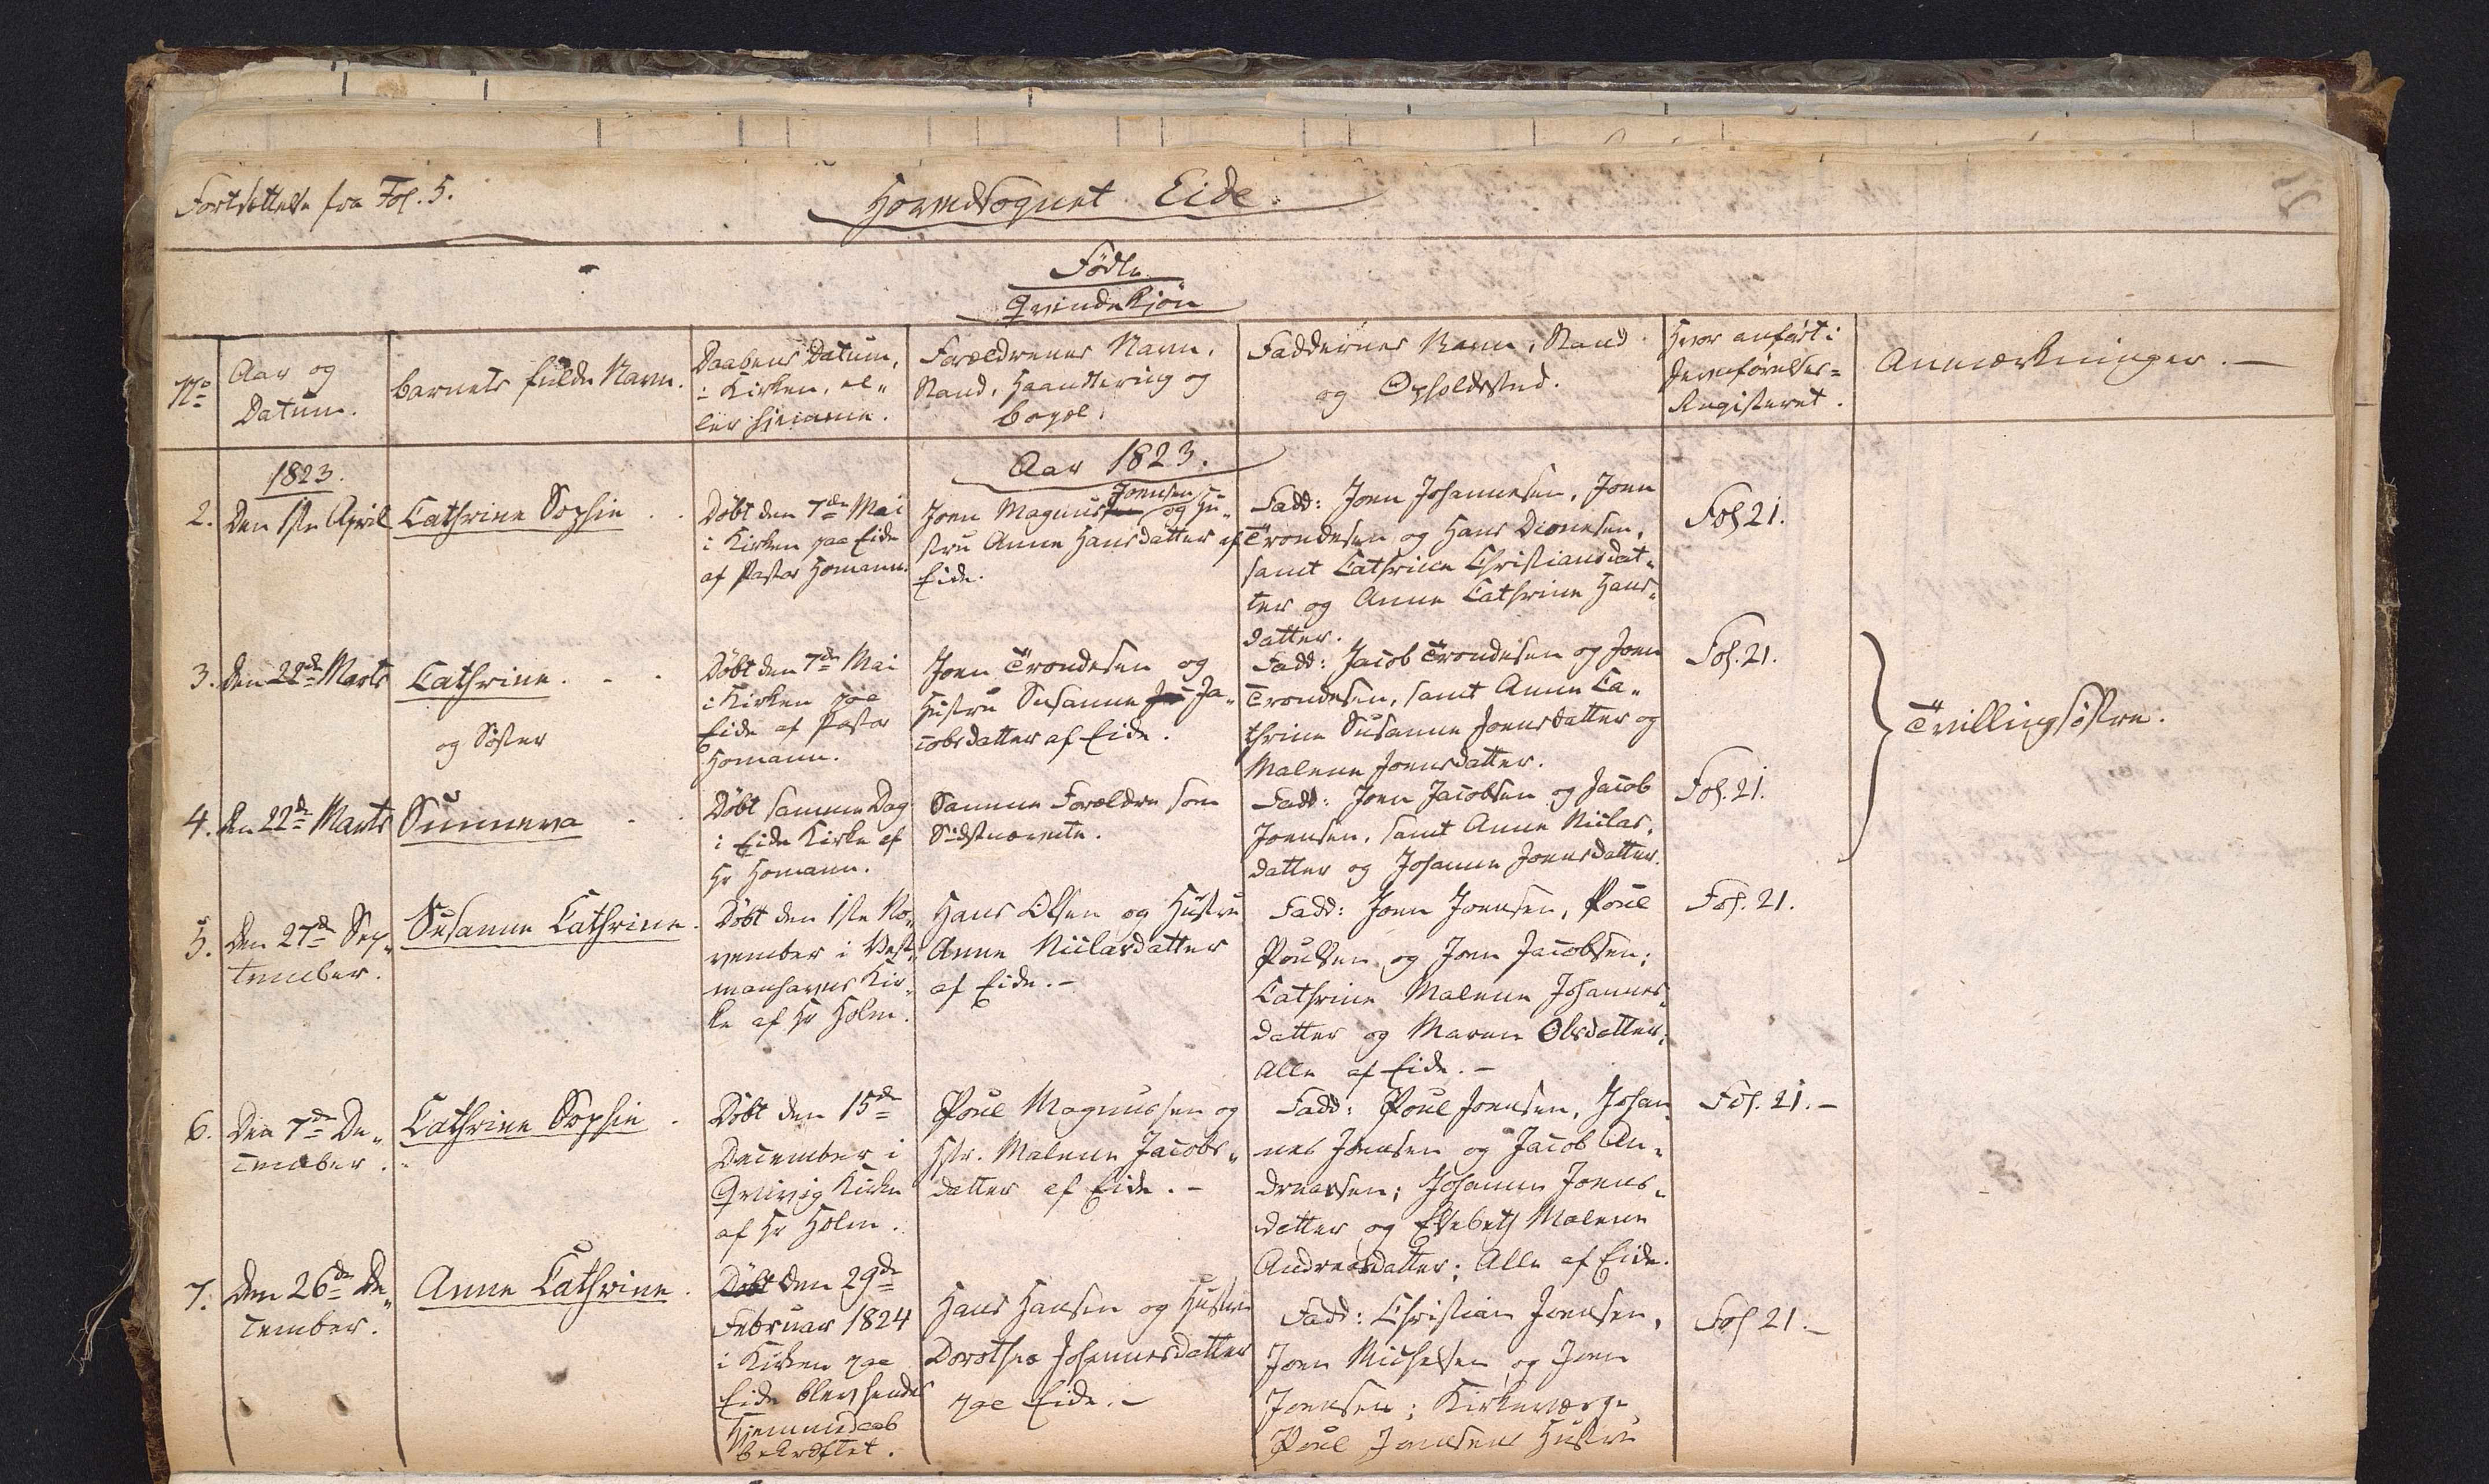 Fortsættelse fra Fol. 5.
Hovedsognet Eide.
Födte
Qvindekjön
No
Aar og
Datum.
Barnets fulde Navn.
Daabens Datum,
i Kirken, el„
ler hjemme.
Forældrenes Navn,
Stand, Haandtering og
Bopæl.
Faddernes Navn, Stand
og Opholdssted.
Hvor anført i
Jevnførelses=
Registeret.
Anmærkninger.—
1823.
Aar 1823.
2.
Den 1ste April
Cathrine Sophie
Döbt den 7de Mai
i Kirken paa Eide
af Pastor Homann.
Joensen
Joen Magnus og Hu„
stru Anne Hansdatter af
Eide.
Fadd: Joen Johannesen, Joen
Trondesen og Hans Dionesen,
samt Cathrine Christiansdat„
ter og Anne Cathrine Hans„
datter.
Fol 21.
3.
Den 22de Marts
Cathrine.
og Söster
Döbt den 7de Mai
i Kirken paa
Eide af Pastor
Homann.
Joen Trondesen og
Hustru Susanne Ja„
cobsdatter af Eide.
Fadd: Jacob Trondesen og Joen
Trondesen, samt Anne Ca„
thrine Susanne Joensdatter og
Malene Joensdatter.
Fol. 21.
Tvillingsöstre.
4.
den 22de Marts
Sunneva
Döbt samme Dag
i Eide Kirke af
Hr Homann.
Samme Forældre som
Sidstnævnte.
Fadd: Joen Jacobsen og Jacob
Joensen, samt Anne Niclas„
datter og Johanne Joensdatter.
Fol. 21.
5.
Den 27de Sep„
tember.
Susanne Cathrine.
Döbt den 1ste No„
vember i Vest„
manhavns Kir„
ke af Hr Holm.
Hans Olsen og Hustru
Anne Niclasdatter
af Eide.—
Fadd: Joen Joensen, Poul
Poulsen og Joen Jacobsen;
Cathrine Malene Johannes„
datter og Maren Olsdatter;
Alle af Eide.—
Fol. 21.
6.
Den 7de De„
cember.
Cathrine Sophie
Döbt den 15de
December i
Qvivig Kirke
af Hr Holm.
Poul Magnussen og
Hstr. Malene Jacobs„
datter af Eide.—
Fadd: Poul Joensen, Johan
nes Joensen og Jacob An„
dreassen; Johanne Joens„
datter og Elsebeth Malene
Andreasdatter; Alle af Eide.
Fol. 21.—
7.
Den 26de De„
cember.
Anne Cathrine.
Döbt den 29de
Februar 1824
i Kirken paa
Eide blev hendes
Hjemmedaab
bekræftet.
Hans Hansen og Hustru
Dorothea Johannesdatter
paa Eide.—
Fadd: Christian Joensen,
Joen Michelsen og Joen
Joensen; Kirkeværge
Poul Joensens Hustru
Fol 21.—